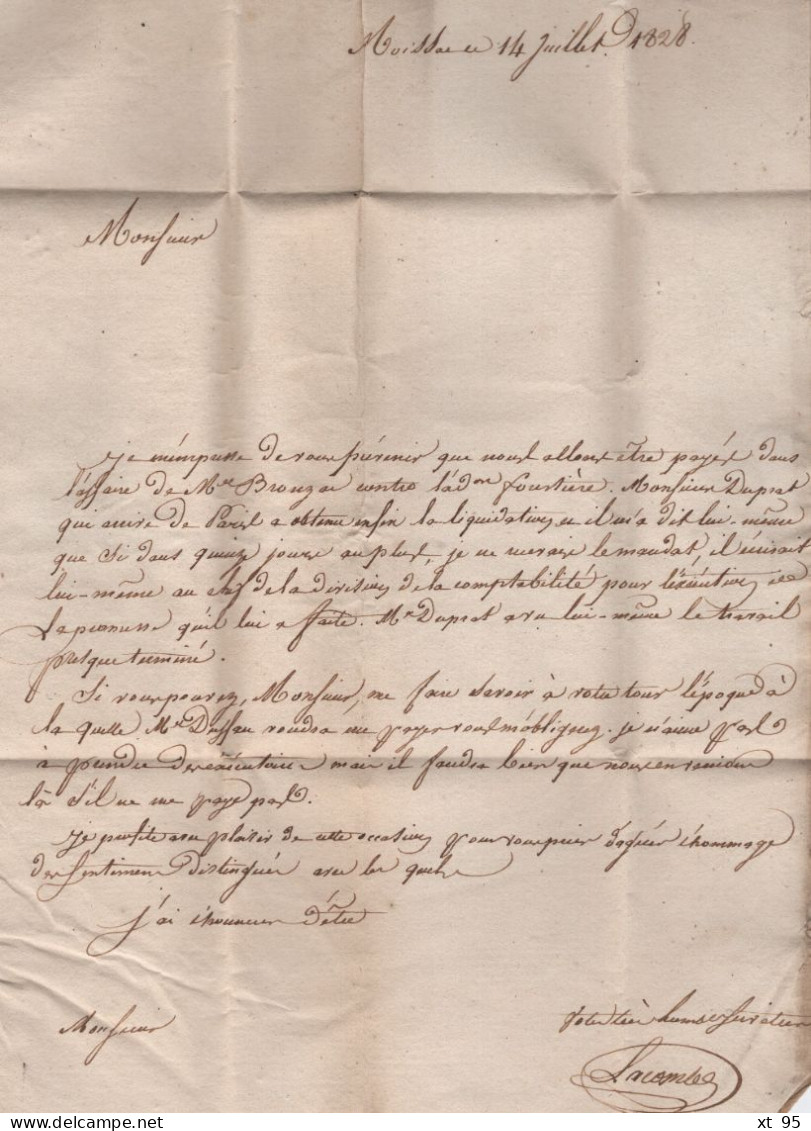 Moissac le 14 juillet 1828.
Monsieur
Je m'empresse de vous prévenir que nous allons être payés dans
l'affaire de Mr Brouzac contre l'adon forestière. Monsieur Duprat
qui arrive de Paris a obtenu enfin la liquidation, et il m'a dit lui-même
que si dans quinze jours au plus, je ne recevais le mandat, il écrirait
lui-même au chef de la division de la comptabilité pour l'exécution de
la promesse qu'il lui a faite. Mr Duprat a vu lui-même le travail
presque terminé.
Si vous pouvez, Monsieur, me faire savoir à votre tour l'époque à
la quelle Mr Dussau voudra me payer vous m'obligerez. je n'aime pas
à prendre des exécutoires mais il faudra bien que nous en venions
là s'il ne me paye pas.
Je profite avec plaisir de cette occasion pour vous prier d'agréer l'hommage
des sentimens distingués avec les quels
j'ai l'honneur d'être
Monsieur
Votre très humble serviteur
Lacombe
xt 95